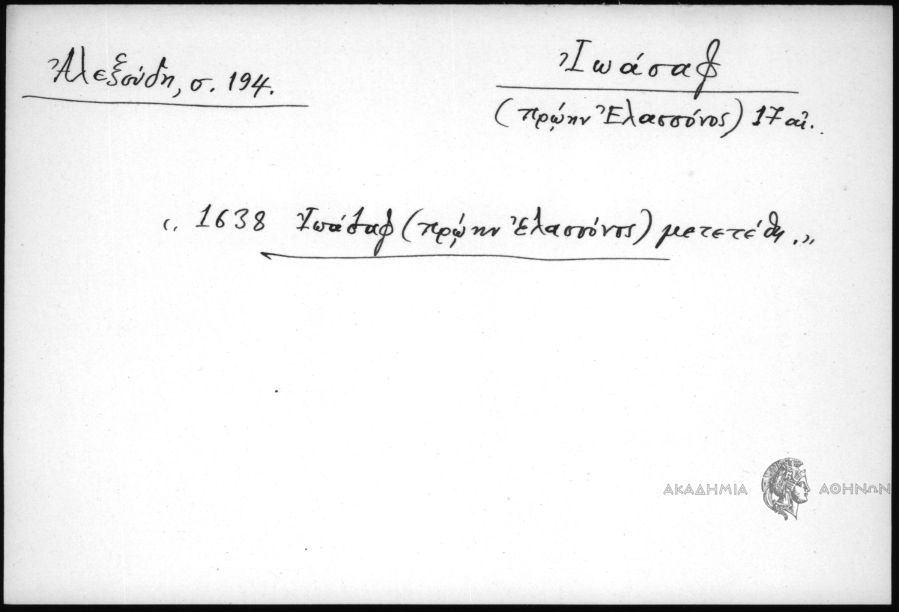 Ἀλεξούδη, σ. 194.
Ἰωάσαφ
(πρώην Ἐλασσόνος) 17 αἰ.
« 1638 Ἰωάσαφ (πρώην Ἐλασσόνος) μετετέθη.»
ΑΚΑΔΗΜΙΑ ΑΘΗΝΩΝ